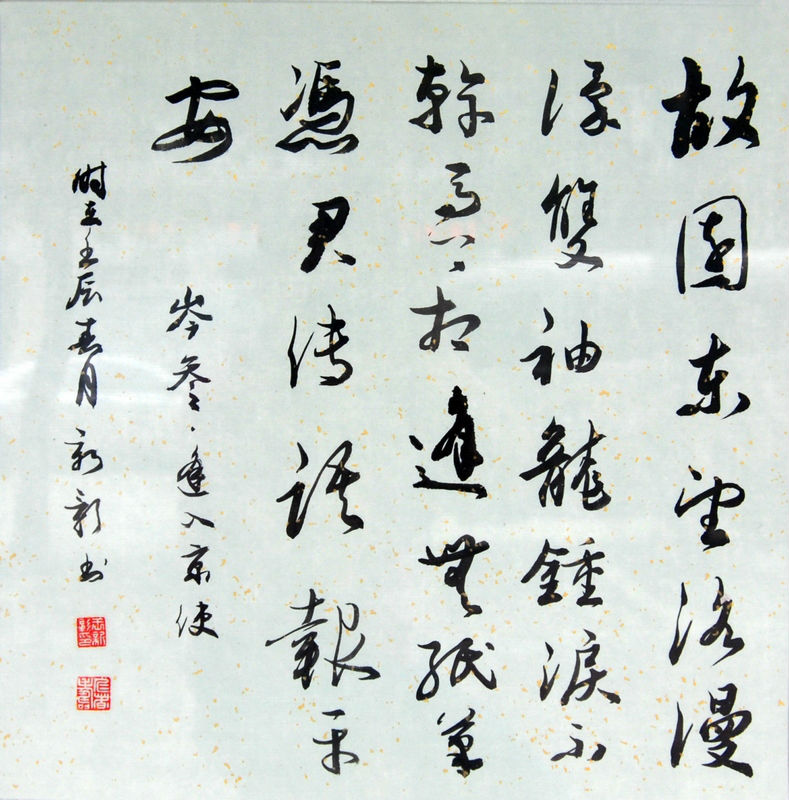 故園东望路漫
漫雙袖龍鍾淚不
幹馬上相逢無紙筆
憑君传語報平
安
岑參、逢入京使
时在壬辰春月书